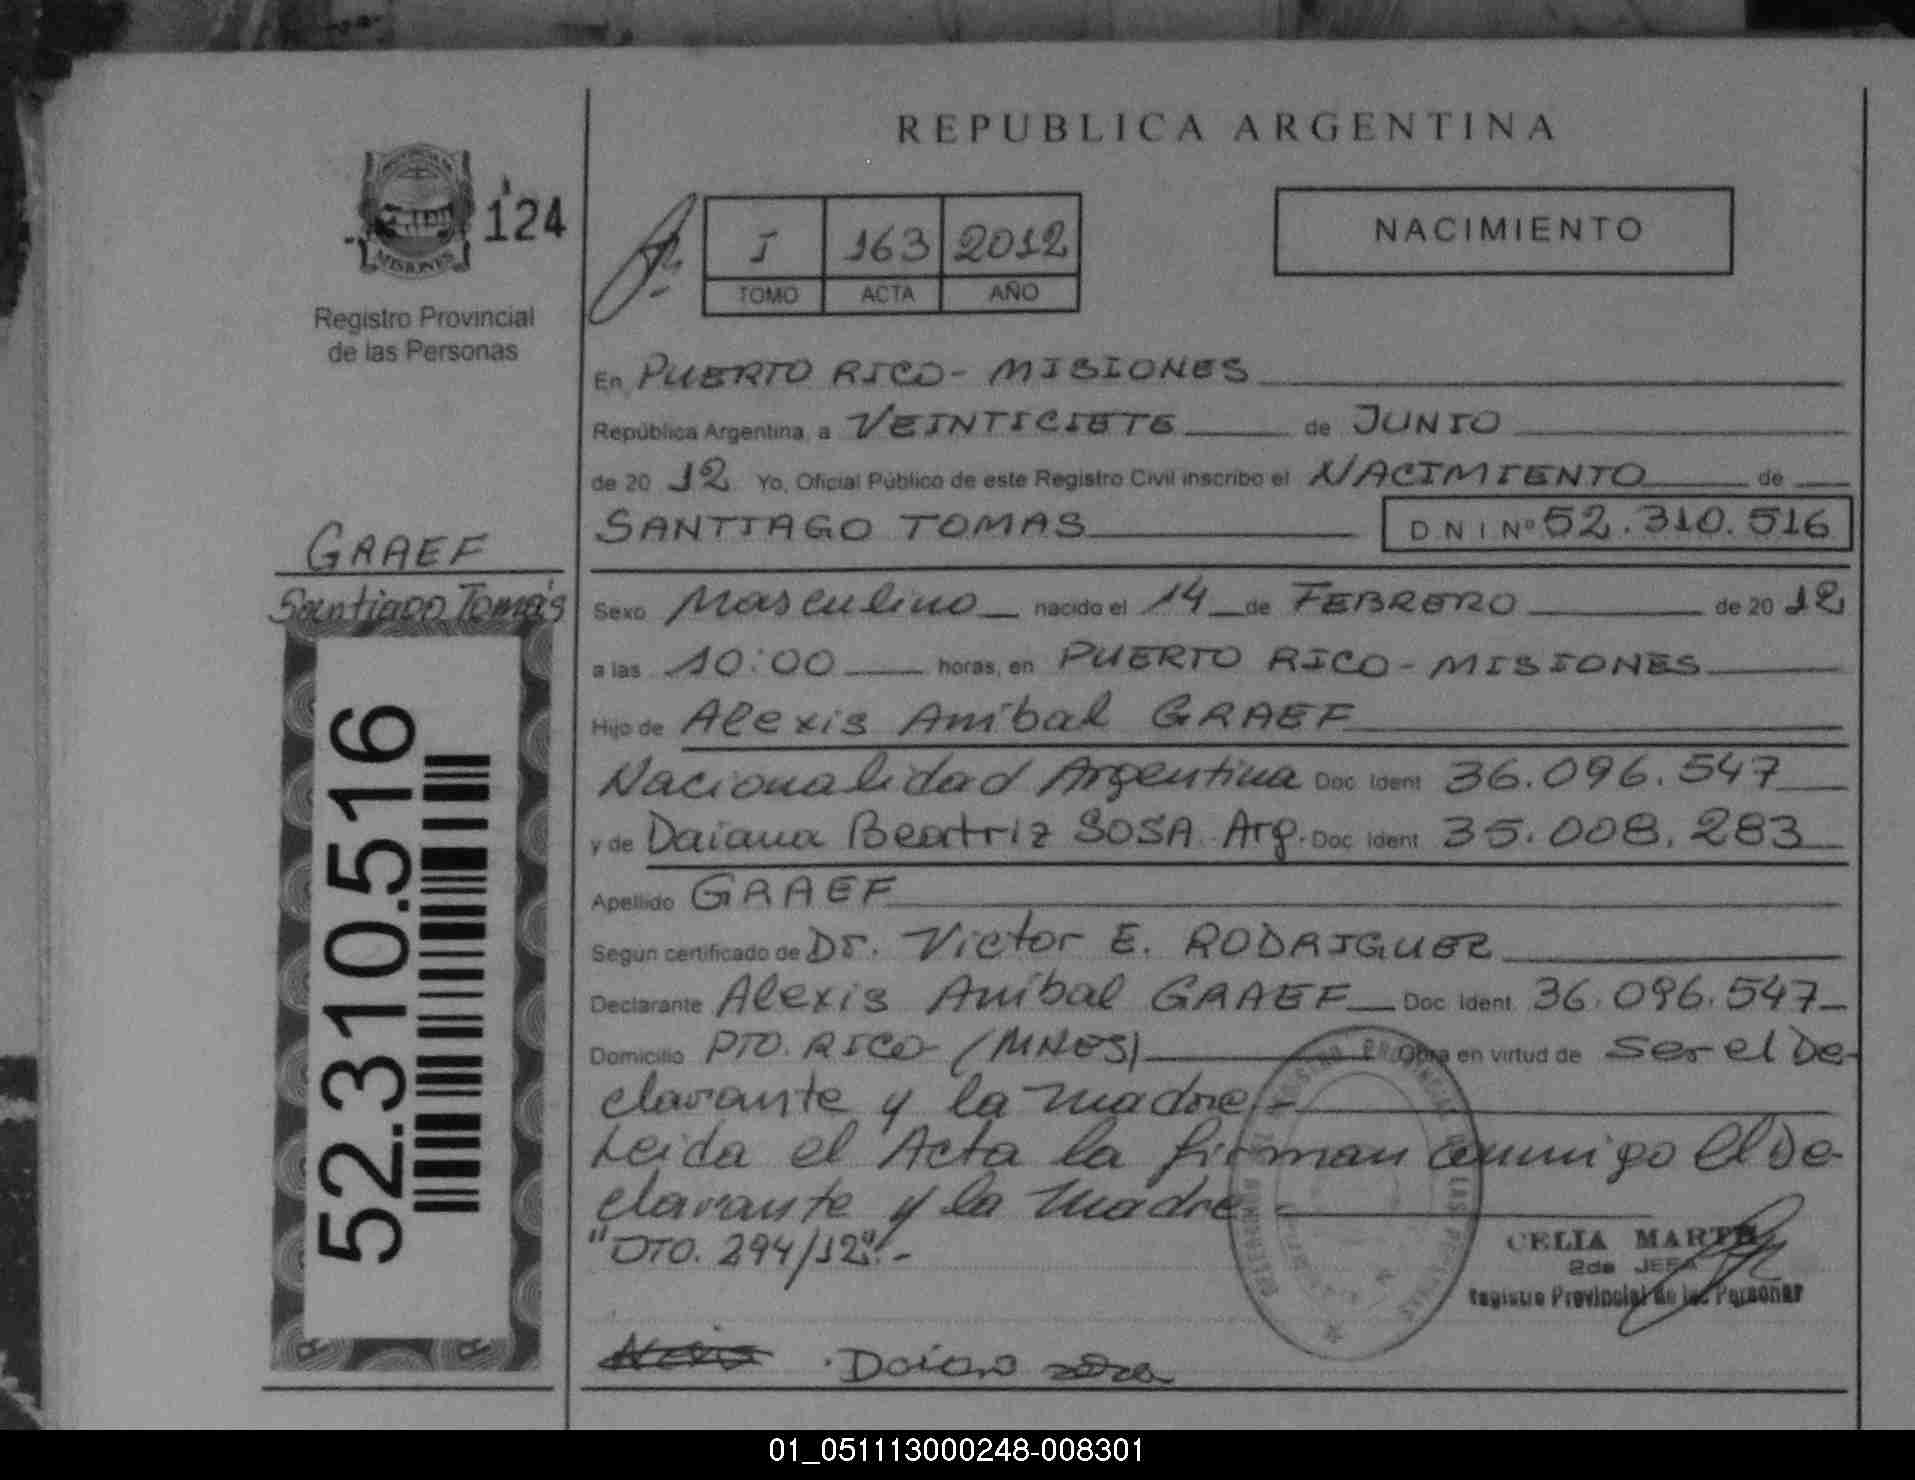 REPUBLICA ARGENTINA
MISIONES
124
Registro Provincial
de las Personas
I 163 2012
TOMO ACTA AÑO
NACIMIENTO
En PUERTO RICO - MISIONES
República Argentina, a VEINTICIETE de JUNIO
de 20 12 Yo, Oficial Público de este Registro Civil inscribo el NACIMIENTO de
SANTIAGO TOMAS DNI Nº 52.310.516
GRAEF
Santiago Tomás
52.310.516
Sexo Masculino nacido el 14 de FEBRERO de 20 12
a las 10:00 horas, en PUERTO RICO - MISIONES
Hijo de Alexis Anibal GRAEF
Nacionalidad Argentina Doc Ident 36.096.547
y de Daiana Beatriz SOSA. Arg. Doc Ident 35.008.283
Apellido GRAEF
Según certificado de Dr. Victor E. RODRIGUEZ
Declarante Alexis Anibal GRAEF Doc. Ident. 36.096.547
Domicilio PTO. RICO - (MNES) Obra en virtud de ser el De-
clarante y la madre.-
Leida el Acta la firman conmigo el De-
clarante y la madre.-
"DTO. 294/12".-
CELIA
2da JEFA
Registro Provincial de las Personas
01_051113000248-008301